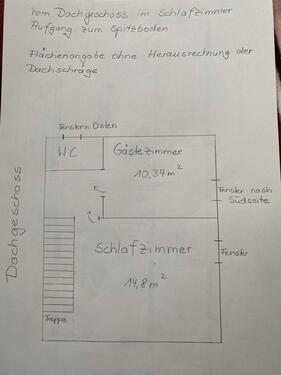 Vom Dachgeschoss im Schlafzimmer
Aufgang zum Spitzboden
Flächenangabe ohne Herausrechnung der
Dachschräge
Fenster n Osten
WC
Gästezimmer
10,34 m²
Fenster nach
Südseite
Dachgeschoss
Schlafzimmer
14,8 m²
Fenster
Treppe